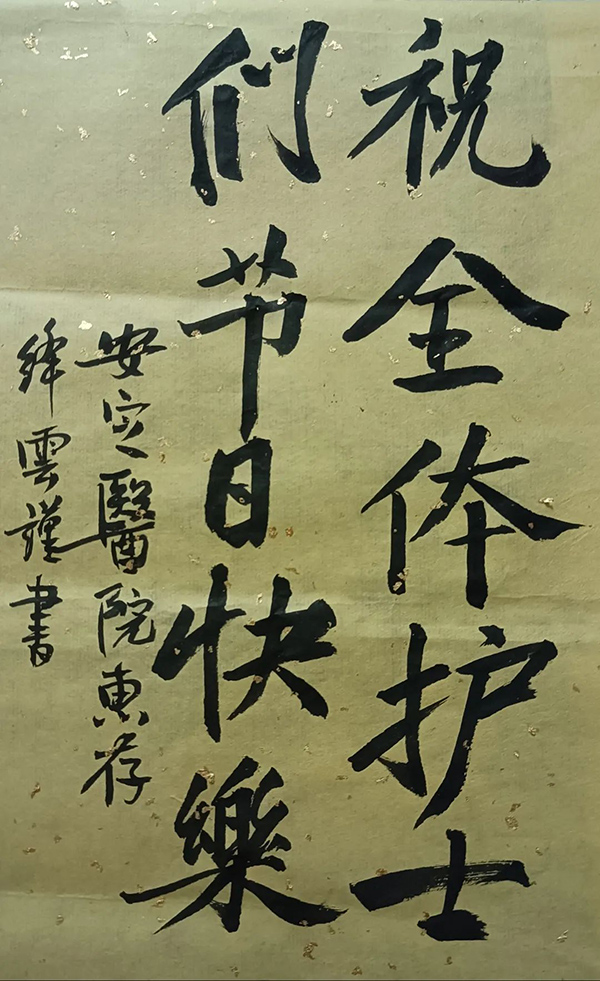 祝全体护士
们节日快樂
安定醫院惠存
绛雲謹書